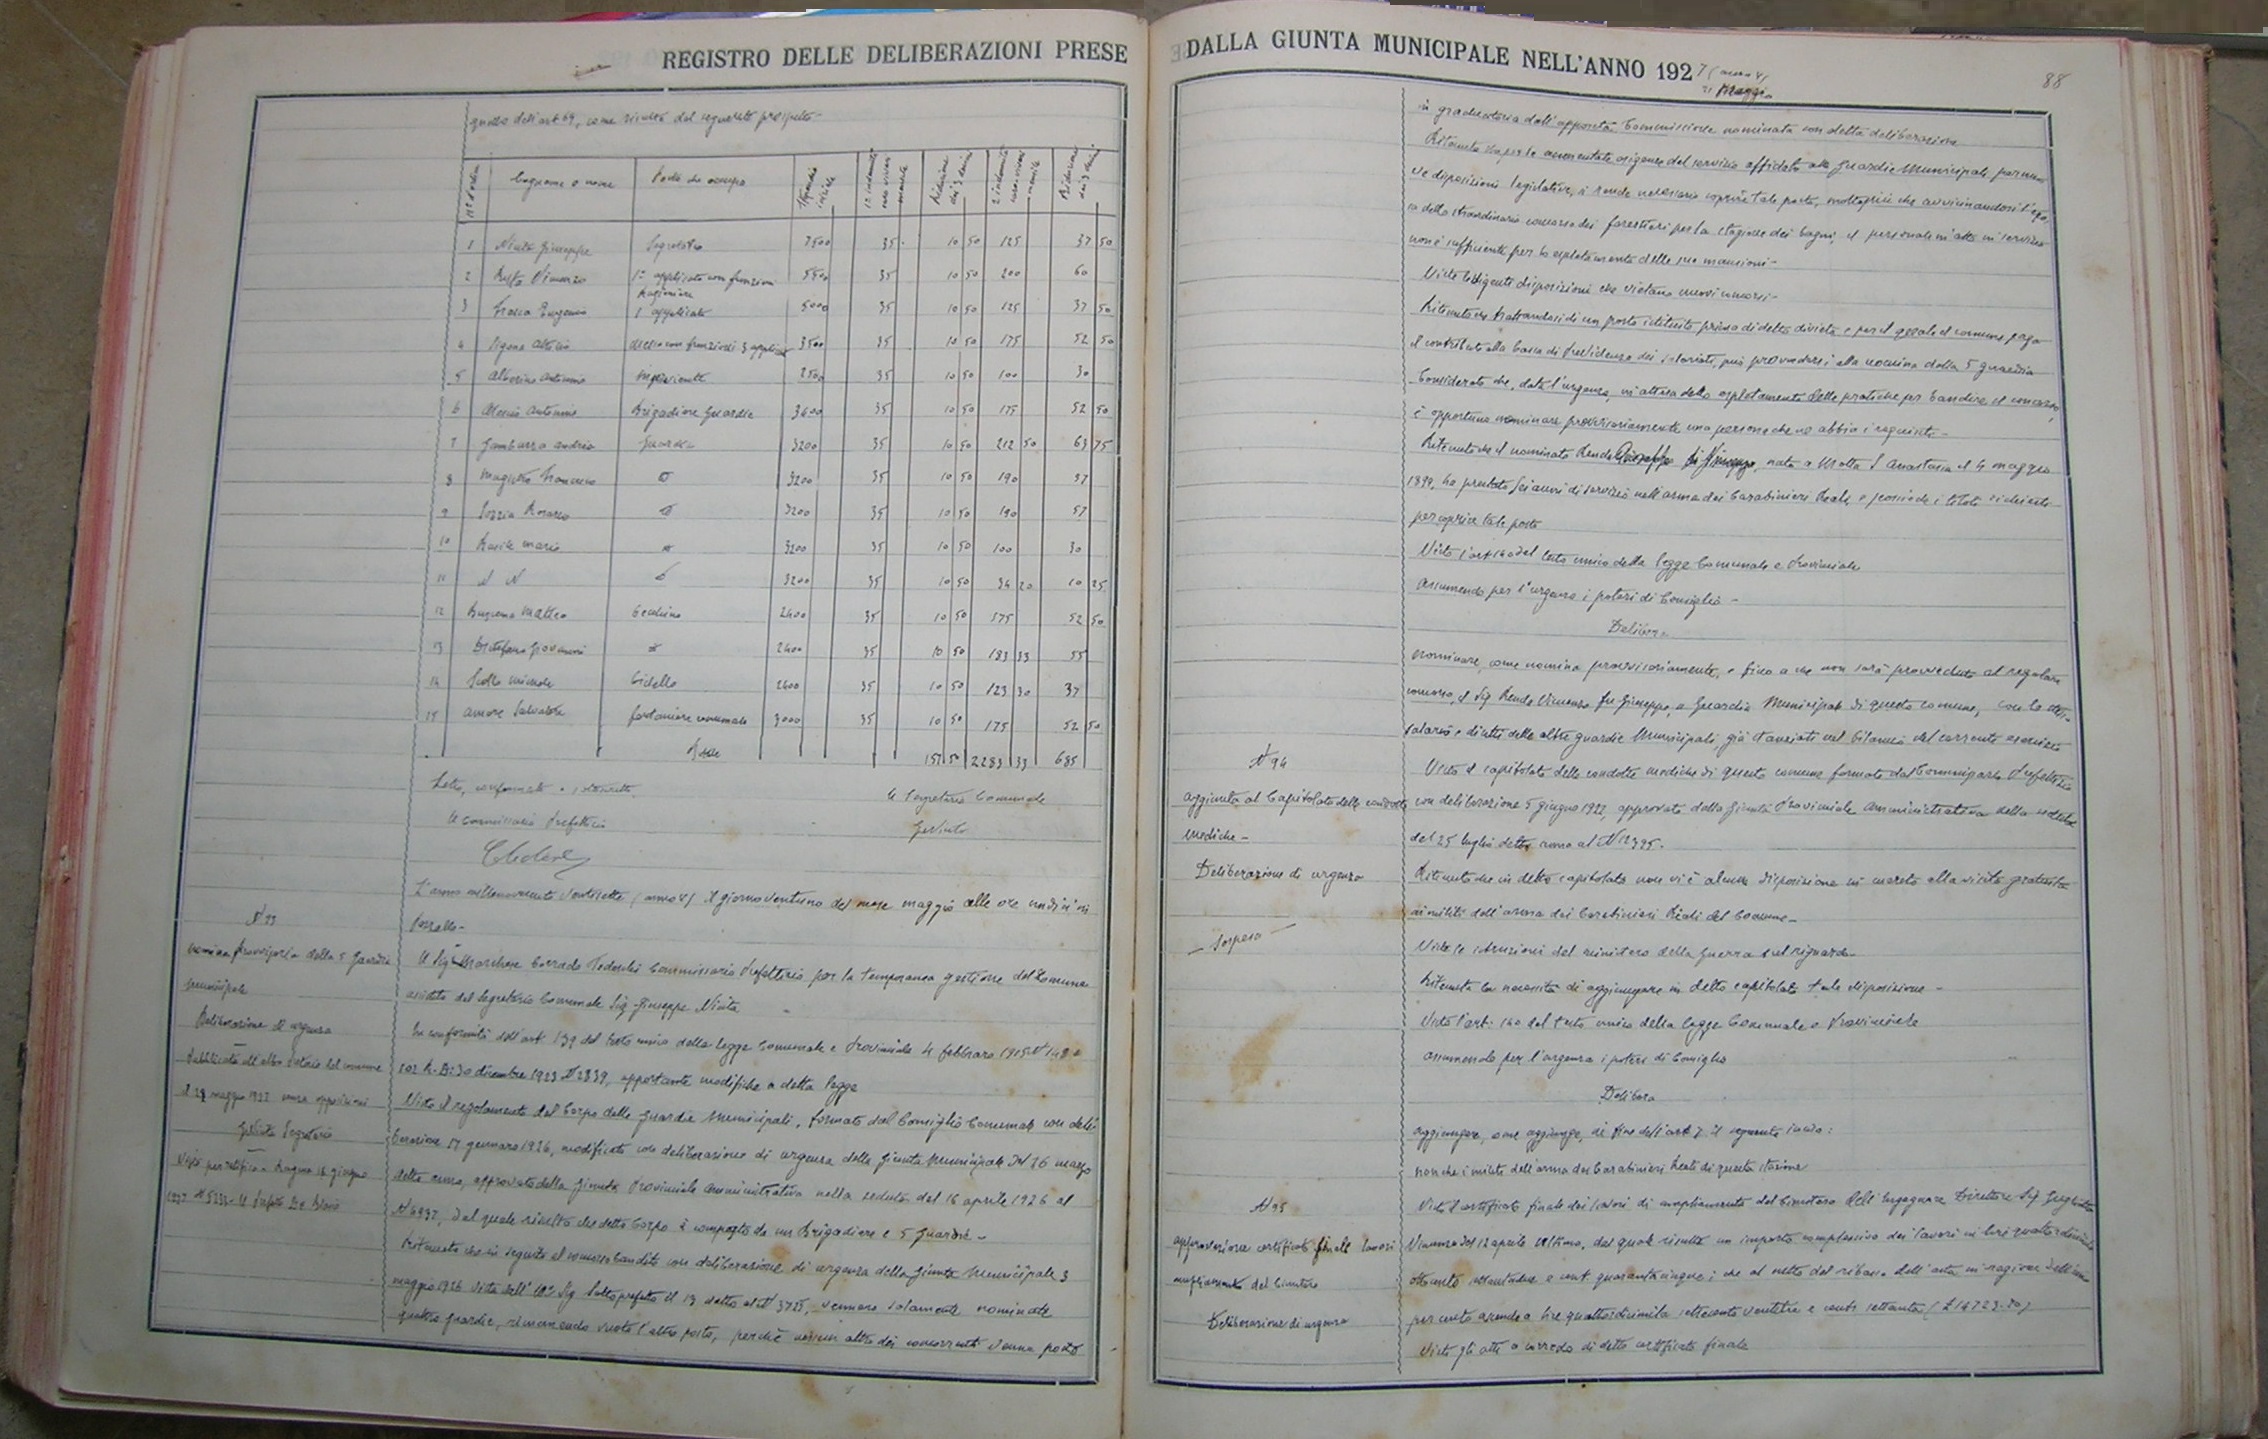 REGISTRO DELLE DELIBERAZIONI PRESE
quello dell'art 69, come risulta dal seguente prospetto-
N° d'ordine Cognome e nome Posto che occupa Stipendio iniziale
1 Giuseppe Segretario 7500 35 10 50 125 37 50
2 Vincenzo 1° applicato con funzioni 5500 35 10 50 200 60
Ragioniere
3 Eugenio 1 applicato 5000 35 10 50 125 37 50
4 con funzioni 3 applicato 3500 35 10 50 175 52 50
5 Antonino 2500 35 10 50 100 30
6 Antonio Brigadiere Guardie 3600 35 10 50 175 52 50
7 Andrea Guardia 3200 35 10 50 212 50 63 75
8 Francesco 3200 35 10 50 190 57
9 Rosario 3200 35 10 50 190 57
10 Mario 3200 35 10 50 100 30
11 N N 3200 35 10 50 34 20 10 25
12 Matteo Becchino 2400 35 10 50 175 52 50
13 Distefano Giovanni 2400 35 10 50 183 33 55
14 Michele Bidello 2400 35 10 50 123 30 37
15 Amore Salvatore fontaniere comunale 3000 35 10 50 175 52 50
157 50 2283 33 685
Letto, confermato e sottoscritto.
Il Segretario Comunale
Il Commissario Prefettizio
L'anno millenovecento ventisette (anno V) il giorno ventuno del mese maggio alle ore undici in
Pozzallo-
N 93
nomina provvisoria della 5 Guardia
Municipale
Deliberazione di urgenza
Pubblicata all'albo Pretorio del comune
il 29 maggio 1927 senza opposizioni
Segretario
Visto per ratifica Ragusa 16 giugno
1927 N 5233 - Il Prefetto
Il Sig Marchese Corrado Tedeschi Commissario Prefettizio per la temporanea gestione del Comune
assistito dal Segretario Comunale Sig Giuseppe
In conformità dell'art 139 del testo unico della legge Comunale e Provinciale 4 febbraio 1915 N 148 e
102 R. D. 30 dicembre 1923 N 2839, apportante modifiche a detta legge
Visto il regolamento del Corpo delle Guardie Municipali, formato dal Consiglio Comunale con deli-
berazione 17 gennaro 1926, modificato con deliberazione di urgenza della Giunta Municipale del 26 marzo
detto anno, approvato dalla Giunta Provinciale Amministrativa nella seduta del 16 aprile 1926 al
N 6937, dal quale risulta che detto Corpo è composto da un Brigadiere e 5 Guardie-
Ritenuto che in seguito al concorso bandito con deliberazione di urgenza della Giunta Municipale 3
maggio 1926 vista dall' Sig Sottoprefetto il 13 detto al N 3725, vennero solamente nominate
quattro guardie, rimanendo vuoto l'altro posto, perchè nessun altro dei concorrenti venne posto
DALLA GIUNTA MUNICIPALE NELL'ANNO 1927 (anno V)
21 Maggio
88
in graduatoria dall'apposita Commissione nominata con detta deliberazione
Ritenuto che per le aumentate esigenze del servizio affidato alle Guardie Municipali per nuo-
ve disposizioni legislative, si rende necessario coprire tale posto, molto più che avvicinandosi l'epo-
ca dello straordinario concorso dei forestieri per la stagione dei bagni, il personale in atto in servizio
non è sufficiente per lo espletamento delle sue mansioni-
Viste le vigenti disposizioni che vietano nuovi concorsi-
Ritenuto che trattandosi di un posto istituito prima di detto divieto e per il quale il comune paga
il contributo alla Cassa di Previdenza dei salariati, può provvedersi alla nomina della 5 guardia
Considerato che, data l'urgenza, in attesa dello espletamento delle pratiche per bandire il concorso,
è opportuno nominare provvisoriamente una persona che ne abbia i requisiti-
Ritenuto che il nominato Renda, nato a Motta S Anastasia il 4 maggio
1899, ha prestato sei anni di servizio nell'arma dei Carabinieri Reali, e possiede i titoli richiesti
per coprire tale posto
Visto l'art 140 del testo unico della legge Comunale e Provinciale
Assumendo per l'urgenza i poteri di Consiglio-
Delibera
nominare, come nomina provvisoriamente, e fino a che non sarà provveduto al regolare
concorso, il Sig Renda Vincenzo fu Giuseppe, a Guardia Municipale di questo comune, con lo
salario e diritti delle altre guardie Municipali, già stanziati nel bilancio del corrente esercizio
N 94
Aggiunta al Capitolato delle condotte
mediche-
Deliberazione di urgenza
- Sospesa -
Visto il capitolato delle condotte mediche di questo comune formato dal Commissario Prefettizio
con deliberazione 5 giugno 1922, approvato dalla Giunta Provinciale Amministrativa nella seduta
del 25 luglio detto anno al N 12395.
Ritenuto che in detto capitolato non vi è alcuna disposizione in merito alla visita gratuita
ai militi dell'arma dei Carabinieri Reali del Comune-
Viste le istruzioni del ministero della Guerra sul riguardo-
Ritenuta la necessità di aggiungere in detto capitolato tale disposizione-
Visto l'art: 140 del testo unico della legge Comunale e Provinciale
Assumendo per l'urgenza i poteri di Consiglio
Delibera
Aggiungere, come aggiunge, in fine dell'art 7 il seguente inciso:
nonchè i militi dell'arma dei Carabinieri Reali di questa stazione
N 95
Approvazione certificato finale lavori
ampliamento del Cimitero
Deliberazione di urgenza
Visto il certificato finale dei lavori di ampliamento del Cimitero dell'Ingegnere Direttore Sig
Vincenzo del 12 aprile ultimo, dal quale risulta un importo complessivo dei lavori in lire quattordicimila
ottocento e cent. quarantacinque; che al netto del ribasso dell'asta in ragione dell'uno
per cento ascende a lire quattordicimila settecento ventitre e cent settanta (£ 14723.70)
Visti gli atti a corredo di detto certificato finale